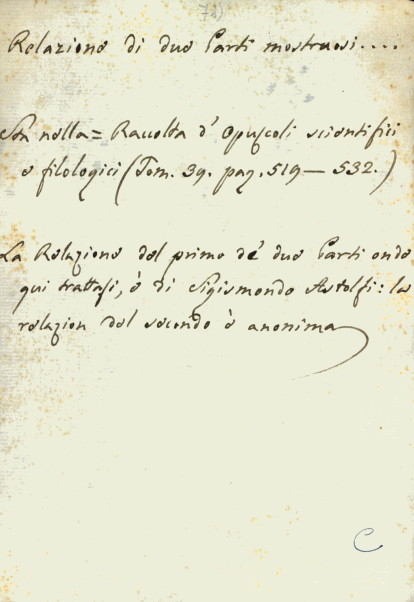 Relazione di due Parti mostruosi....
Sta nella = Raccolta d' Opuscoli scientifici
e filologici (Tom. 39. pag. 519 — 532.)
La Relazione del primo de' due Parti onde
qui trattasi, è di Sigismondo Astolfi: la
relazion del secondo è anonima
C